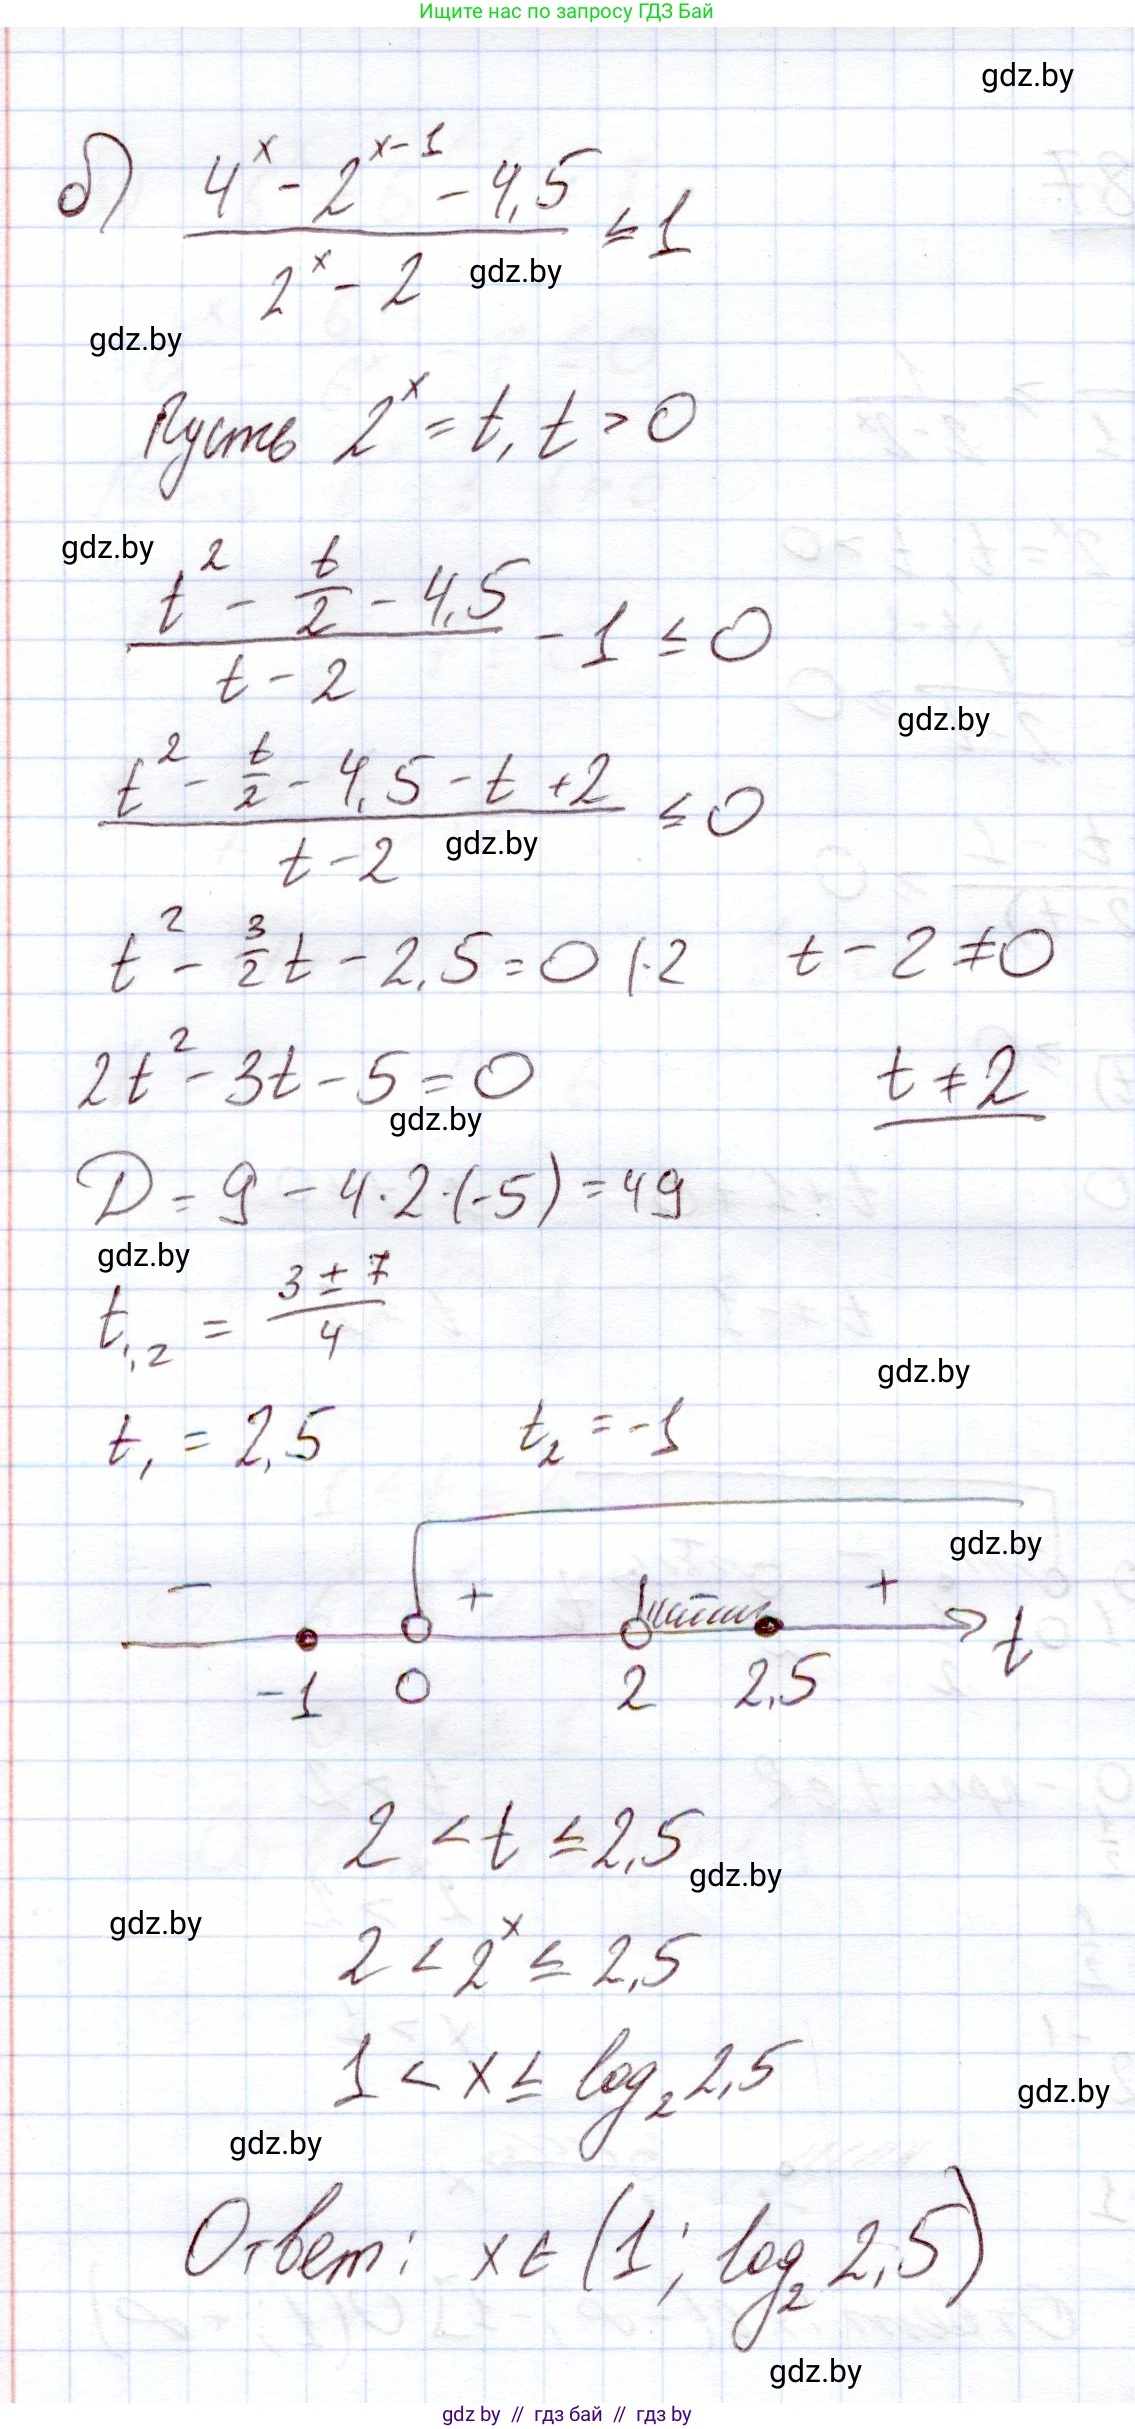 Ищите нас по запросу ГДЗ Бай
gdz.by
б) (4^x - 2^(x-1) - 4,5) / (2^x - 2) ≤ 1
gdz.by
gdz.by
Пусть 2^x = t, t > 0
gdz.by
(t^2 - t/2 - 4,5) / (t - 2) - 1 ≤ 0
gdz.by
(t^2 - t/2 - 4,5 - t + 2) / (t - 2) ≤ 0
gdz.by
t^2 - 3/2 t - 2,5 = 0 |·2 t - 2 ≠ 0
2t^2 - 3t - 5 = 0 t ≠ 2
gdz.by
D = 9 - 4·2·(-5) = 49
gdz.by
t_1,2 = (3 ± 7) / 4
gdz.by
t_1 = 2,5 t_2 = -1
gdz.by
- + - +
-1 0 2 2,5 t
2 < t ≤ 2,5
gdz.by
gdz.by
2 < 2^x ≤ 2,5
1 < x ≤ log_2 2,5
gdz.by
gdz.by
Ответ: x ∈ (1; log_2 2,5)
gdz.by
gdz by // гдз бай // гдз by